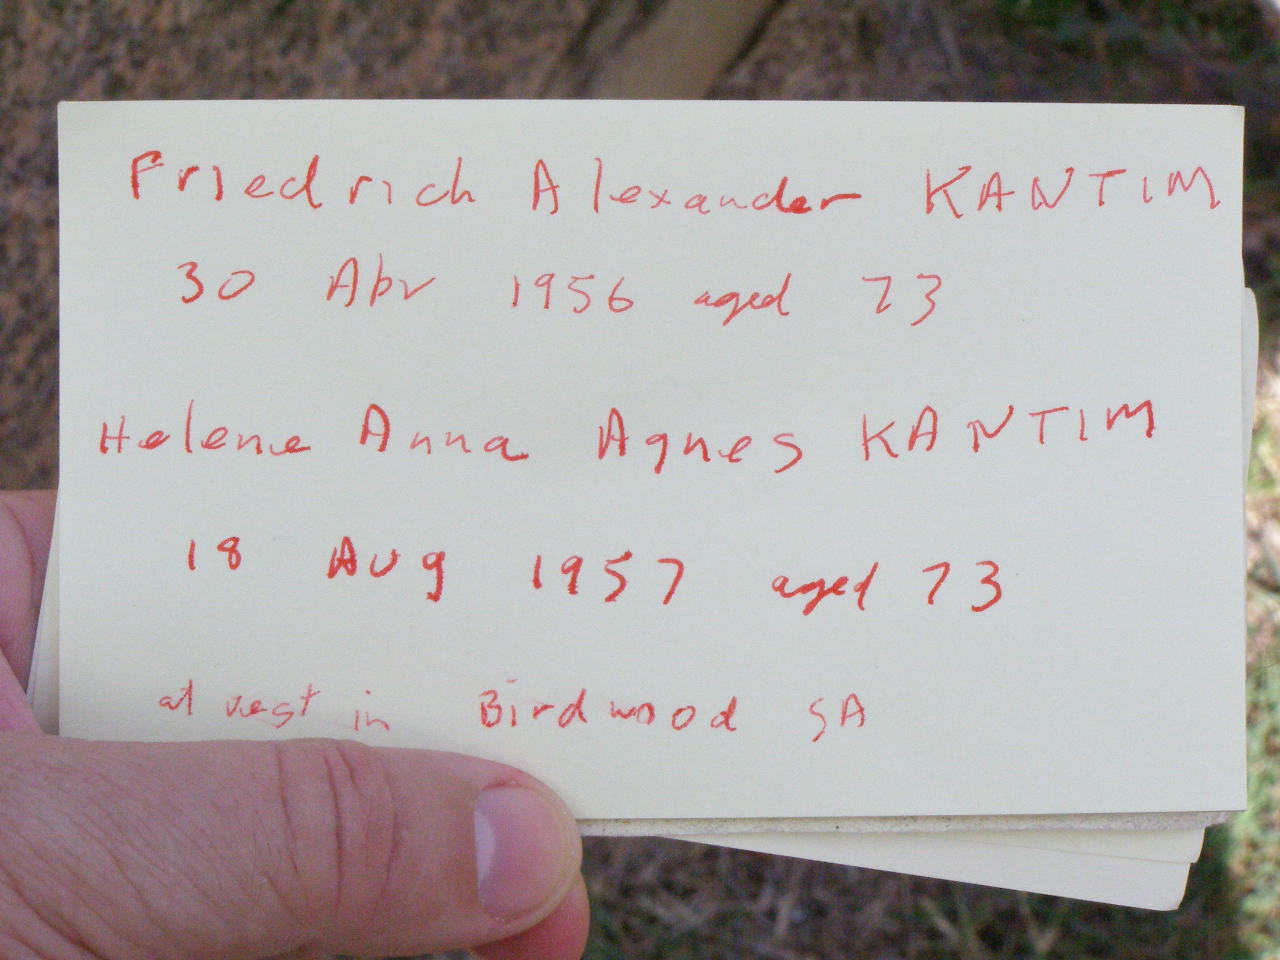 Friedrich Alexander KANTIM
30 Apr 1956 aged 73
Helene Anna Agnes KANTIM
18 Aug 1957 aged 73
at rest in Birdwood SA